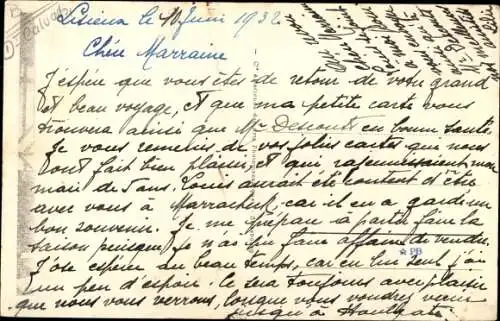 Calvados
Lisieux le 10 Juin 1932
Chère Marraine
J'espère que vous êtes de retour de votre grand
et beau voyage, et que ma petite carte vous
trouvera ainsi que Mr Descourts en bonne santé
Je vous remercie de vos jolies cartes qui nous
ont fait bien plaisir, et qui rajeunissaient mon
mari de 5 ans. Louis aurait été content d'être
avec vous à Marrackech, car il en a gardé un
bon souvenir. Je me prépare à partir faire la
saison puisque je n'ai pu faire affaire de vendre.
J'ose espérer au beau temps, car en lui seul j'ai
un peu d'espoir. Ce sera toujours avec plaisir
que nous vous verrons, lorsque vous voudrez venir
jusqu'à Houlgate.
PB